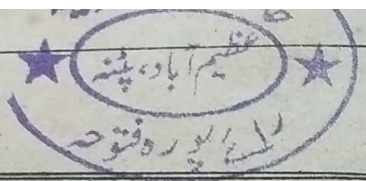 عظیم آباد، پٹنہ
رائے پورہ فتوحہ